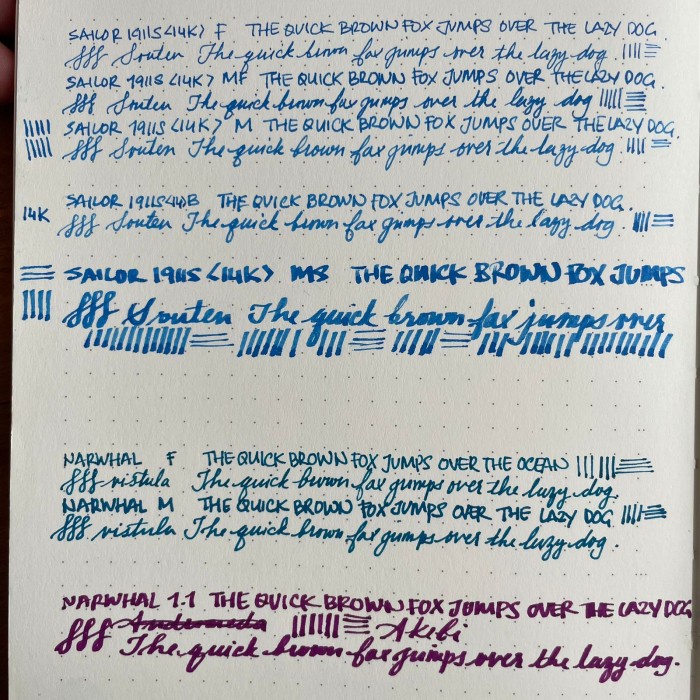 SAILOR 1911S <14K> F THE QUICK BROWN FOX JUMPS OVER THE LAZY DOG.
fff Souten The quick brown fox jumps over the lazy dog.
SAILOR 1911S <14K> MF THE QUICK BROWN FOX JUMPS OVER THE LAZY DOG.
fff Souten The quick brown fox jumps over the lazy dog
SAILOR 1911S <14K> M THE QUICK BROWN FOX JUMPS OVER THE LAZY DOG.
fff Souten The quick brown fox jumps over the lazy dog.
14K SAILOR 1911S <14K> B THE QUICK BROWN FOX JUMPS OVER THE LAZY DOG.
fff Souten The quick brown fox jumps over the lazy dog.
SAILOR 1911S <14K> MS THE QUICK BROWN FOX JUMPS
fff Souten The quick brown fox jumps over
NARWHAL F THE QUICK BROWN FOX JUMPS OVER THE OCEAN
fff vistula The quick brown fox jumps over the lazy dog.
NARWHAL M THE QUICK BROWN FOX JUMPS OVER THE LAZY DOG
fff vistula The quick brown fox jumps over the lazy dog.
NARWHAL 1.1 THE QUICK BROWN FOX JUMPS OVER THE LAZY DOG
fff Andromeda Akebi
The quick brown fox jumps over the lazy dog.